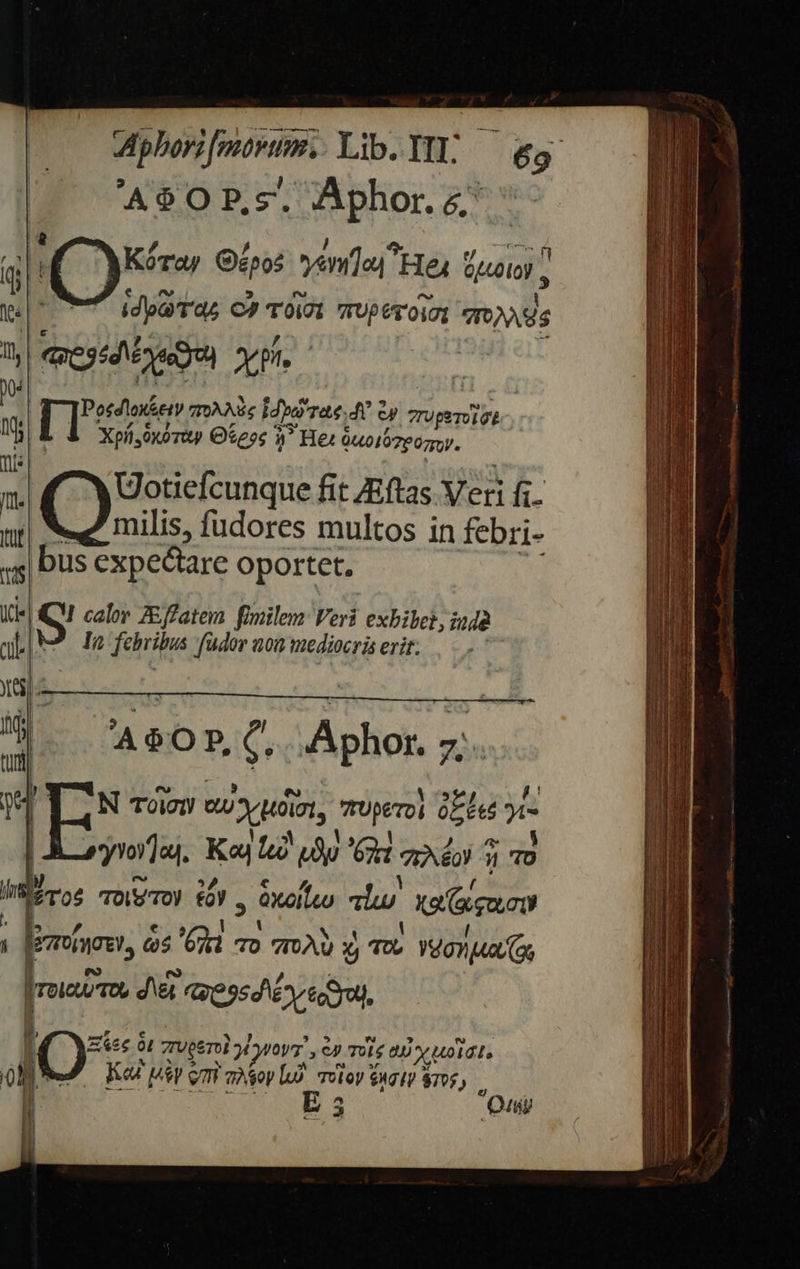 Aphorismorum. Lib. III. 69
ἈΦΟΡ. ς'. Aphor. 6.
ὉΚόταν Θέρος γένηται Ἦρι ὅμοιον,
ἱδρῶτας ἐν τοῖσι πυρετοῖσι πολλοὺς
προσδέχεσθαι χρή.
ΠΡοσδοκέειν πολλοὺς ἱδρῶτας δ' ἐν πυρετοῖσι
Χρή, ὁκόταν Θέρος ᾖ Ἦρι ὁμοιότροπον.
QUotiescunque fit Æstas Veri si-
milis, sudores multos in febri-
bus expectare oportet.
SI calor Æstatem similem Veri exhibet, indè
In febribus sudor non mediocris erit.
ἈΦΟΡ. ζ. Aphor. 7.
ἘΝ τοῖσιν αὐχμοῖσι, πυρετοὶ ὀξέες γί-
γνονται. Καὶ ἢν μὲν ἐπὶ πλέον ᾖ τὸ
ἔτος τοιοῦτον ἐὸν, ὁκοίην τὴν κατάστασιν
ἐποίησεν, ὡς ἐπὶ τὸ πολὺ καὶ τὰ νοσήματα
τοιαῦτα δεῖ προσδέχεσθαι.
ὈΞέες οἱ πυρετοὶ γίγνοντ', ἐν τοῖς αὐχμοῖσι.
Καὶ μὲν ἐπὶ πλέον ἢν τοῖον ἔῃσιν ἔτος,
E 3